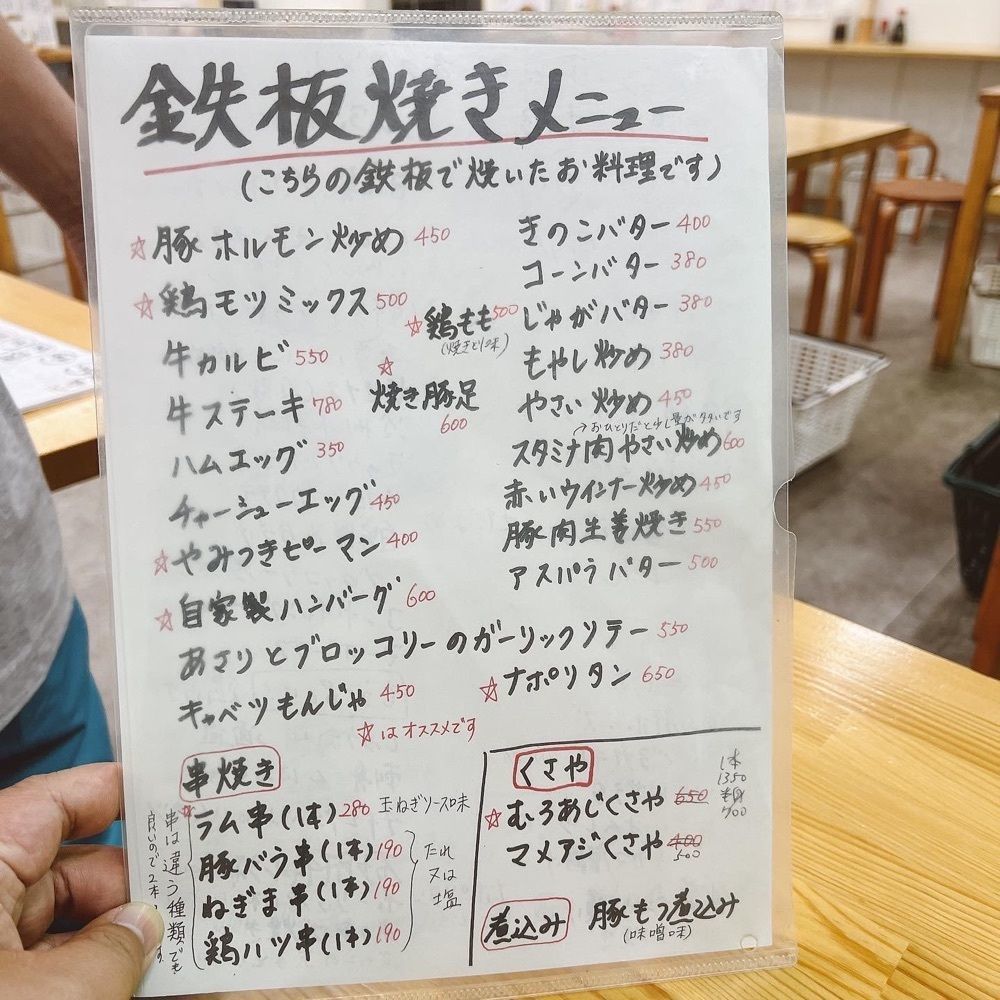 鉄板焼きメニュー
(こちらの鉄板で焼いたお料理です)
☆豚ホルモン炒め 450
☆鶏モツミックス 500
☆鶏もも 500
(焼きとり味)
牛カルビ 550
☆焼き豚足
600
牛ステーキ 780
ハムエッグ 350
チャーシューエッグ 450
☆やみつきピーマン 400
☆自家製ハンバーグ 600
きのこバター 400
コーンバター 380
じゃがバター 380
もやし炒め 380
やさい炒め 450
→おひとりだと少し量が多いです
スタミナ肉やさい炒め 600
赤いウインナー炒め 450
豚肉生姜焼き 550
アスパラバター 500
あさりとブロッコリーのガーリックソテー 550
キャベツもんじゃ 450
☆ナポリタン 650
☆はオススメです
串焼き
☆ラム串(1本) 280 玉ねぎソース味
豚バラ串(1本) 190
ねぎま串(1本) 190
鶏ハツ串(1本) 190
たれ
又は
塩
串は違う種類でも
良いので2本
くさや
☆むろあじくさや 650
1本
1350
半身
700
マメアジくさや 400
500
煮込み
豚もつ煮込み
(味噌味)